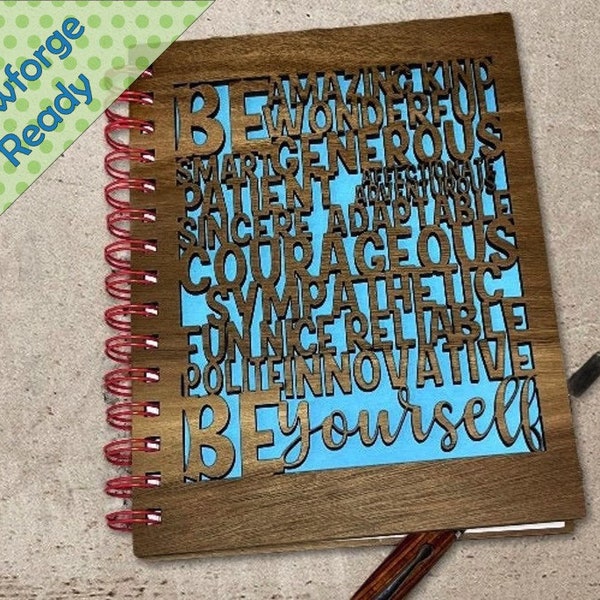 wforge
Ready
BE AMAZING KIND
WONDERFUL
SMART GENEROUS
PATIENT AFFECTIONATE
ADVENTUROUS
SINCERE ADAPTABLE
COURAGEOUS
SYMPATHETIC
FUN NICE RELIABLE
POLITE INNOVATIVE
BE yourself